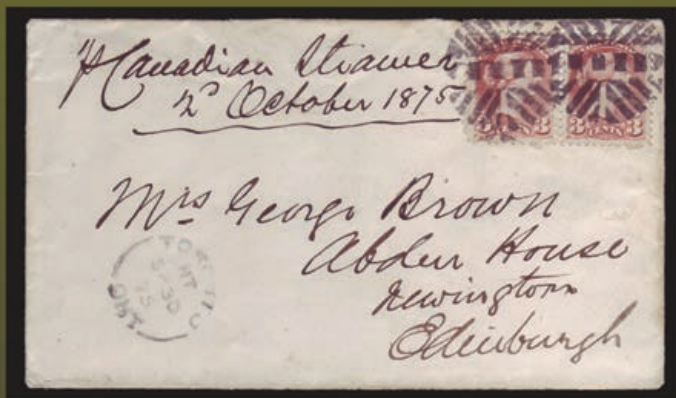 p Canadian Steamer
2d October 1875
3 CENTS 3
3 CENTS 3
Mrs George Brown
Abden House
Newington
Edinburgh
TORONTO
SP 30
75
ONT